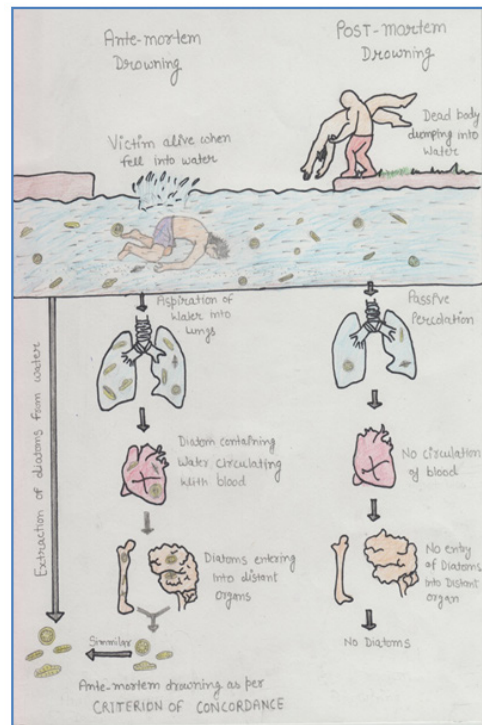 Ante-mortem
Drowning
Post-mortem
Drowning
Victim alive when
fell into water
Dead body
dumping into
Water
Aspiration of
Water into
lungs
Passive
Percolation
Extraction of diatoms from water
Diatom containing
Water circulating
with blood
No circulation
of blood
Diatoms entering
into distant
organs
No entry
of Diatoms
into Distant
organ
No Diatoms
Simmilar
Ante-mortem drowning as per
CRITERION OF CONCORDANCE